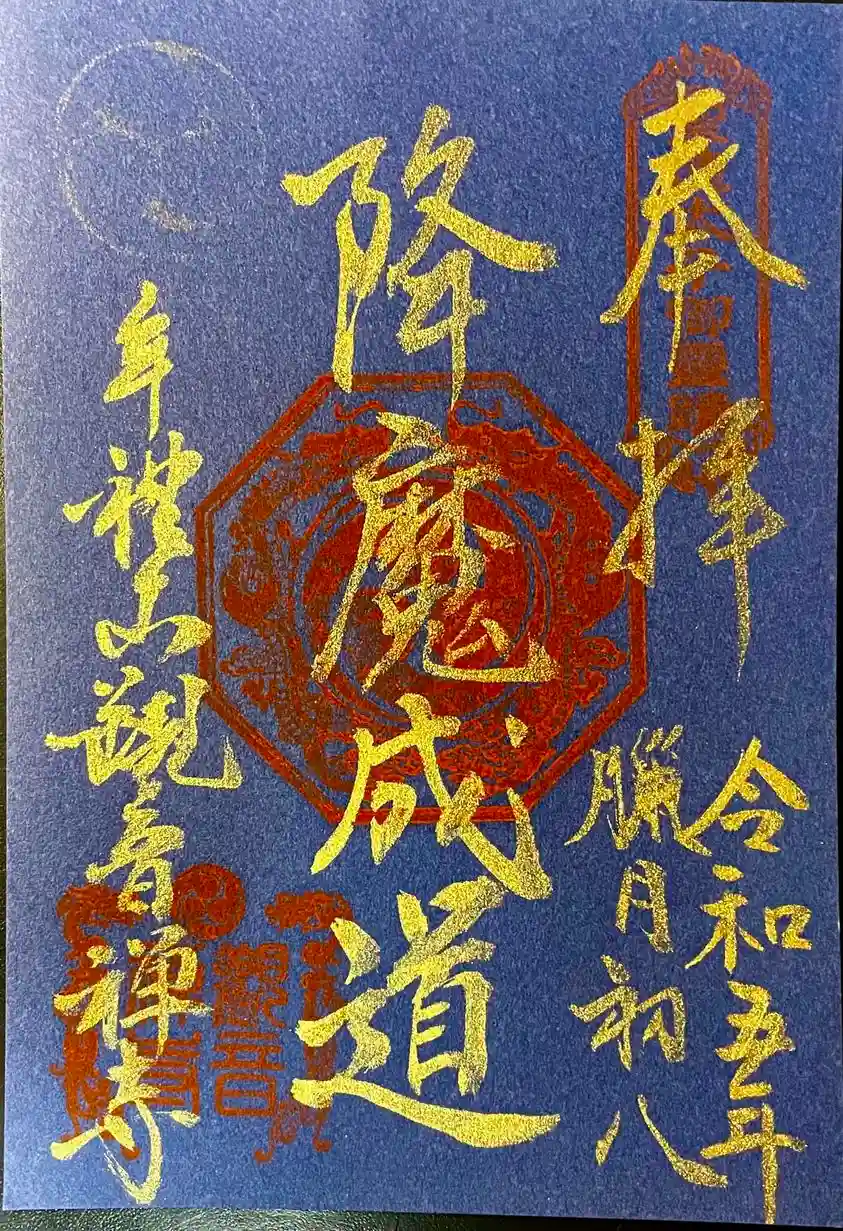 奉拝
令和五年
臘月初八
降魔成道
牟禮山観音禅寺
観音